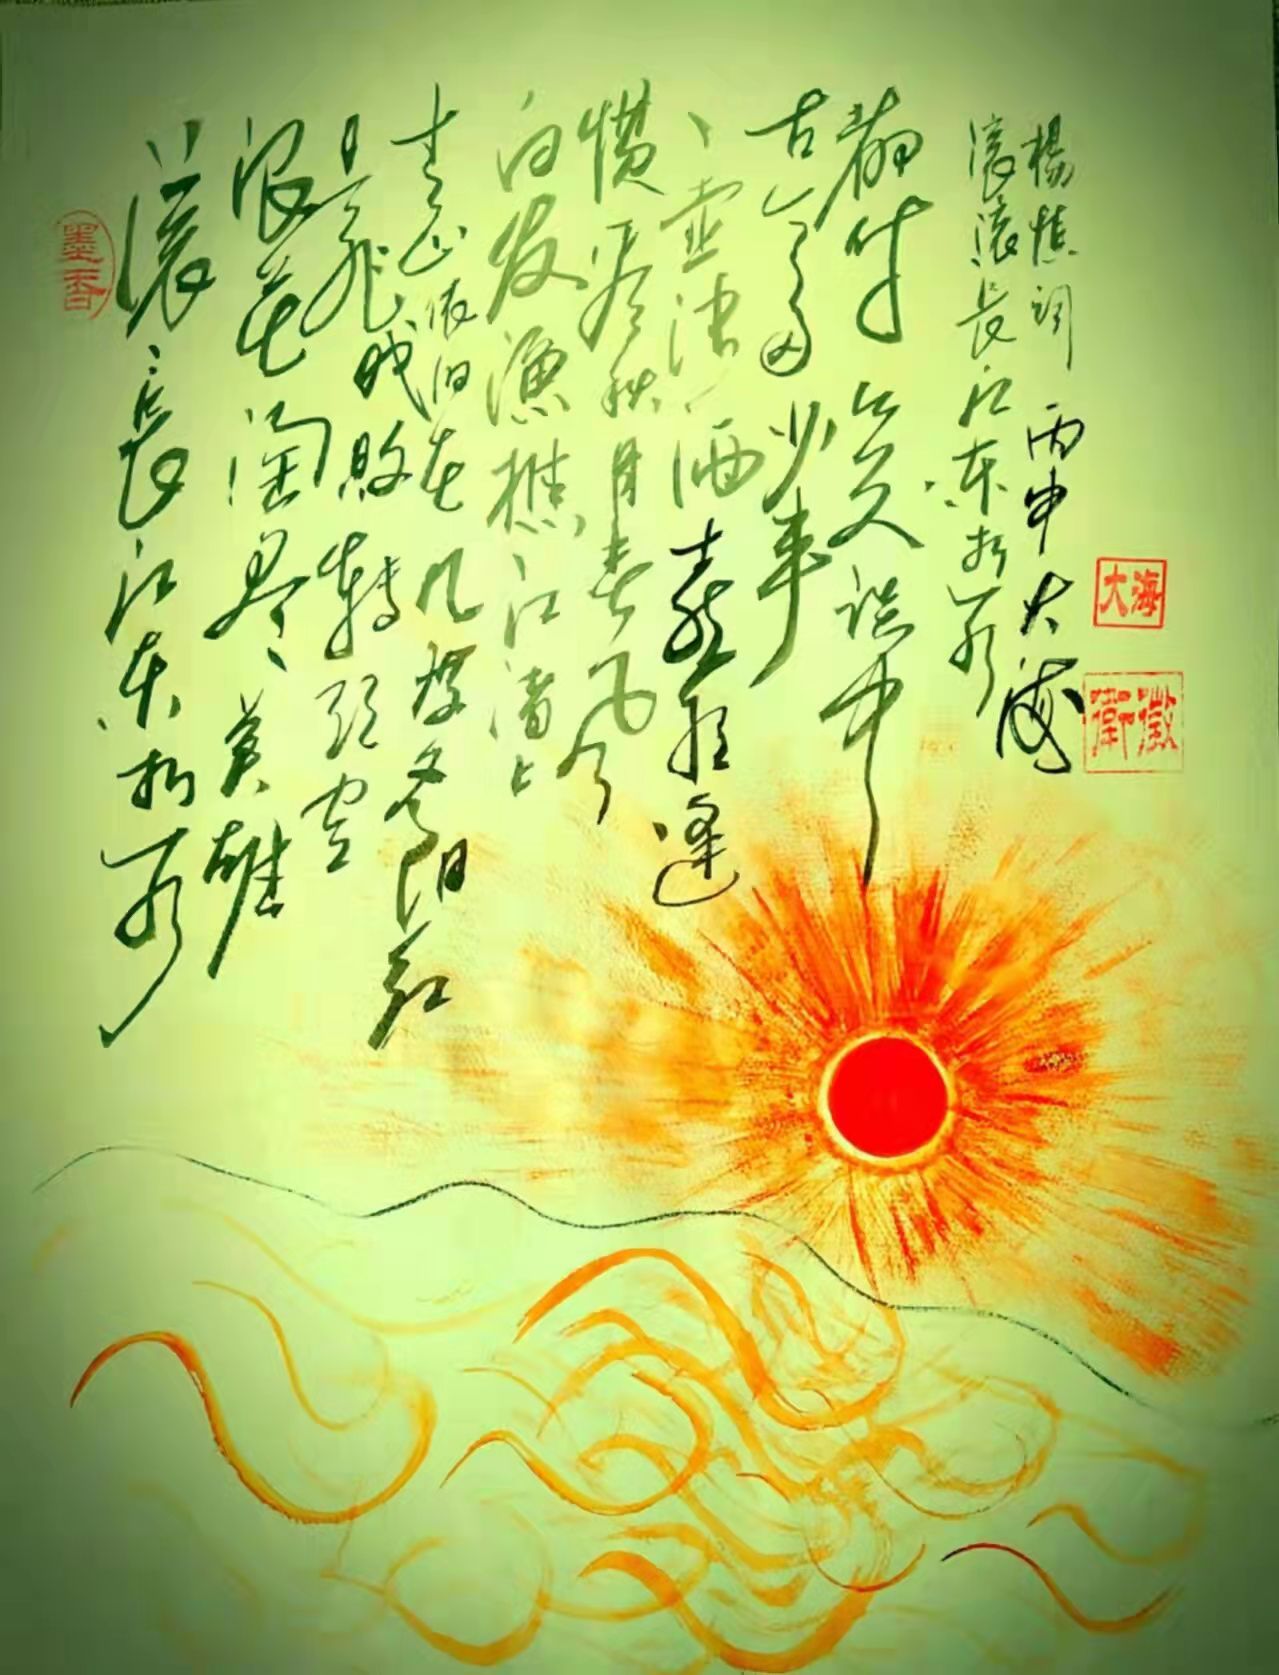 墨香
滚滚长江东逝水
浪花淘尽英雄
是非成败转头空
青山依旧在几度夕阳红
白发渔樵江渚上
惯看秋月春风
一壶浊酒喜相逢
古今多少事
都付笑谈中
滚滚长江东逝水
楊慎词 丙申大海
大海